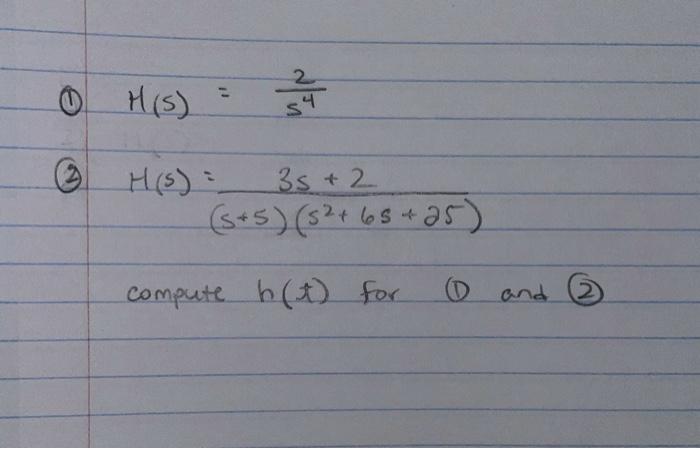 ① H(s) = 2/s⁴
② H(s) = (3s + 2)/((s+5)(s²+ 6s + 25))
compute h(t) for ① and ②